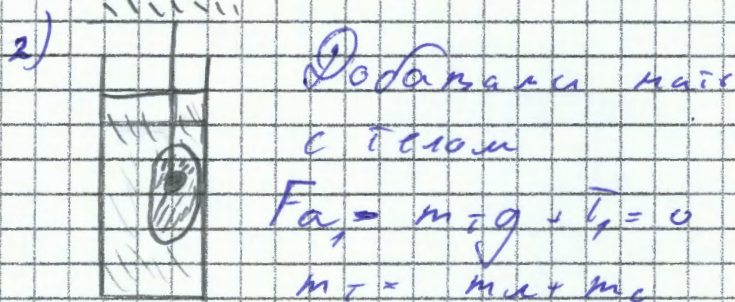 2)
Добавили нить
с телом
Fa₁ - mтg + T₁ = 0
mт = mл + mс